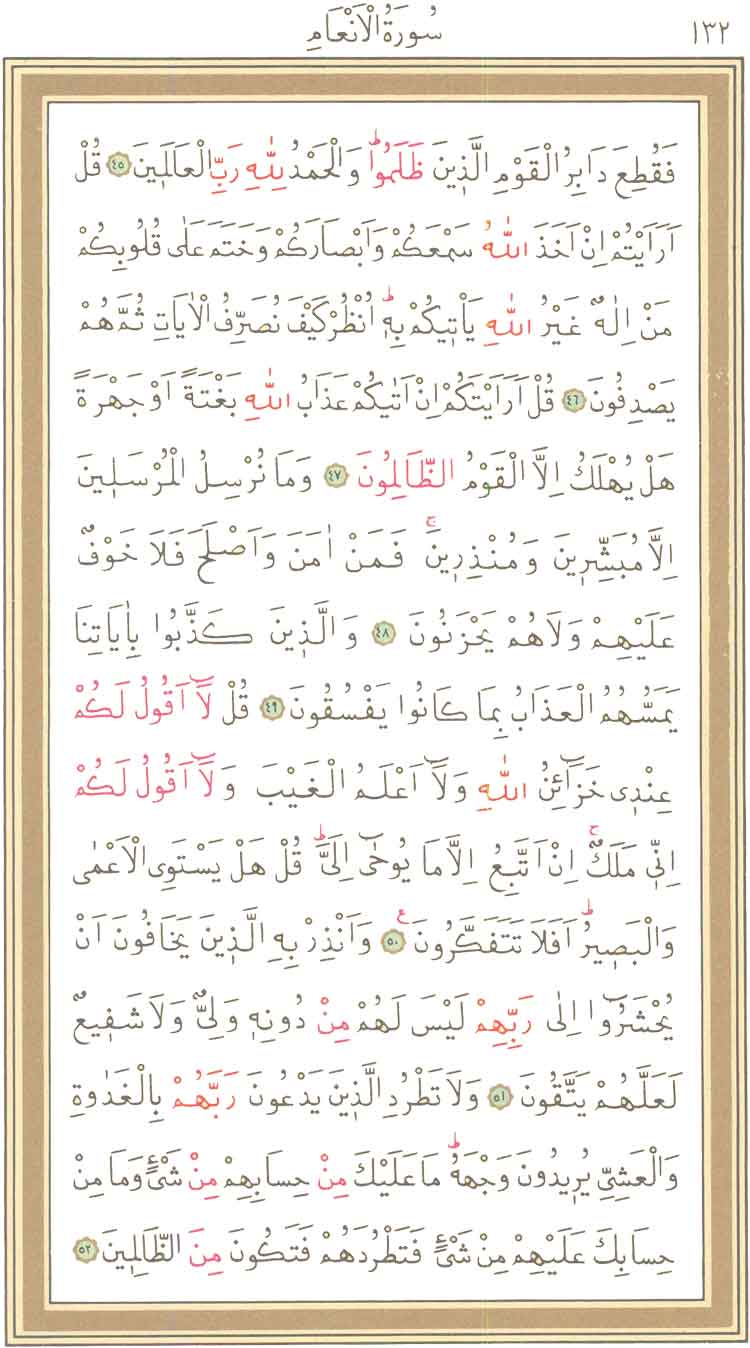 ١٣٢
سُورَةُ الْاَنْعَامِ
فَقُطِعَ دَابِرُ الْقَوْمِ الَّذ۪ينَ ظَلَمُواۜ وَالْحَمْدُ لِلّٰهِ رَبِّ الْعَالَم۪ينَ ﴿٤٥﴾ قُلْ
اَرَاَيْتُمْ اِنْ اَخَذَ اللّٰهُ سَمْعَكُمْ وَاَبْصَارَكُمْ وَخَتَمَ عَلٰى قُلُوبِكُمْ
مَنْ اِلٰهٌ غَيْرُ اللّٰهِ يَأْت۪يكُمْ بِه۪ۜ اُنْظُرْ كَيْفَ نُصَرِّفُ الْاٰيَاتِ ثُمَّ هُمْ
يَصْدِفُونَ ﴿٤٦﴾ قُلْ اَرَاَيْتَكُمْ اِنْ اَتٰيكُمْ عَذَابُ اللّٰهِ بَغْتَةً اَوْ جَهْرَةً
هَلْ يُهْلَكُ اِلَّا الْقَوْمُ الظَّالِمُونَ ﴿٤٧﴾ وَمَا نُرْسِلُ الْمُرْسَل۪ينَ
اِلَّا مُبَشِّر۪ينَ وَمُنْذِر۪ينَۚ فَمَنْ اٰمَنَ وَاَصْلَحَ فَلَا خَوْفٌ
عَلَيْهِمْ وَلَا هُمْ يَحْزَنُونَ ﴿٤٨﴾ وَالَّذ۪ينَ كَذَّبُوا بِاٰيَاتِنَا
يَمَسُّهُمُ الْعَذَابُ بِمَا كَانُوا يَفْسُقُونَ ﴿٤٩﴾ قُلْ لَٓا اَقُولُ لَكُمْ
عِنْد۪ي خَزَٓائِنُ اللّٰهِ وَلَٓا اَعْلَمُ الْغَيْبَ وَلَٓا اَقُولُ لَكُمْ
اِنّ۪ي مَلَكٌۚ اِنْ اَتَّبِعُ اِلَّا مَا يُوحٰٓى اِلَيَّۜ قُلْ هَلْ يَسْتَوِي الْاَعْمٰى
وَالْبَص۪يرُۜ اَفَلَا تَتَفَكَّرُونَ۟ ﴿٥٠﴾ وَاَنْذِرْ بِهِ الَّذ۪ينَ يَخَافُونَ اَنْ
يُحْشَرُٓوا اِلٰى رَبِّهِمْ لَيْسَ لَهُمْ مِنْ دُونِه۪ وَلِيٌّ وَلَا شَف۪يعٌ
لَعَلَّهُمْ يَتَّقُونَ ﴿٥١﴾ وَلَا تَطْرُدِ الَّذ۪ينَ يَدْعُونَ رَبَّهُمْ بِالْغَدٰوةِ
وَالْعَشِيِّ يُر۪يدُونَ وَجْهَهُۜ مَا عَلَيْكَ مِنْ حِسَابِهِمْ مِنْ شَيْءٍ وَمَا مِنْ
حِسَابِكَ عَلَيْهِمْ مِنْ شَيْءٍ فَتَطْرُدَهُمْ فَتَكُونَ مِنَ الظَّالِم۪ينَ ﴿٥٢﴾